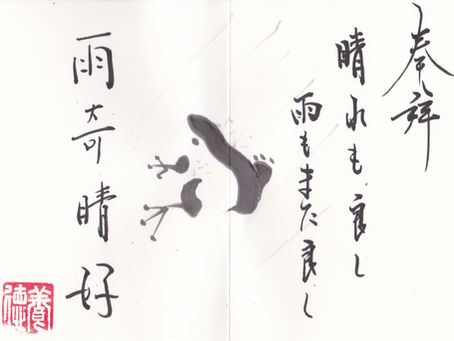 奉拝
晴れも良し
雨もまた良し
雨奇晴好
養徳